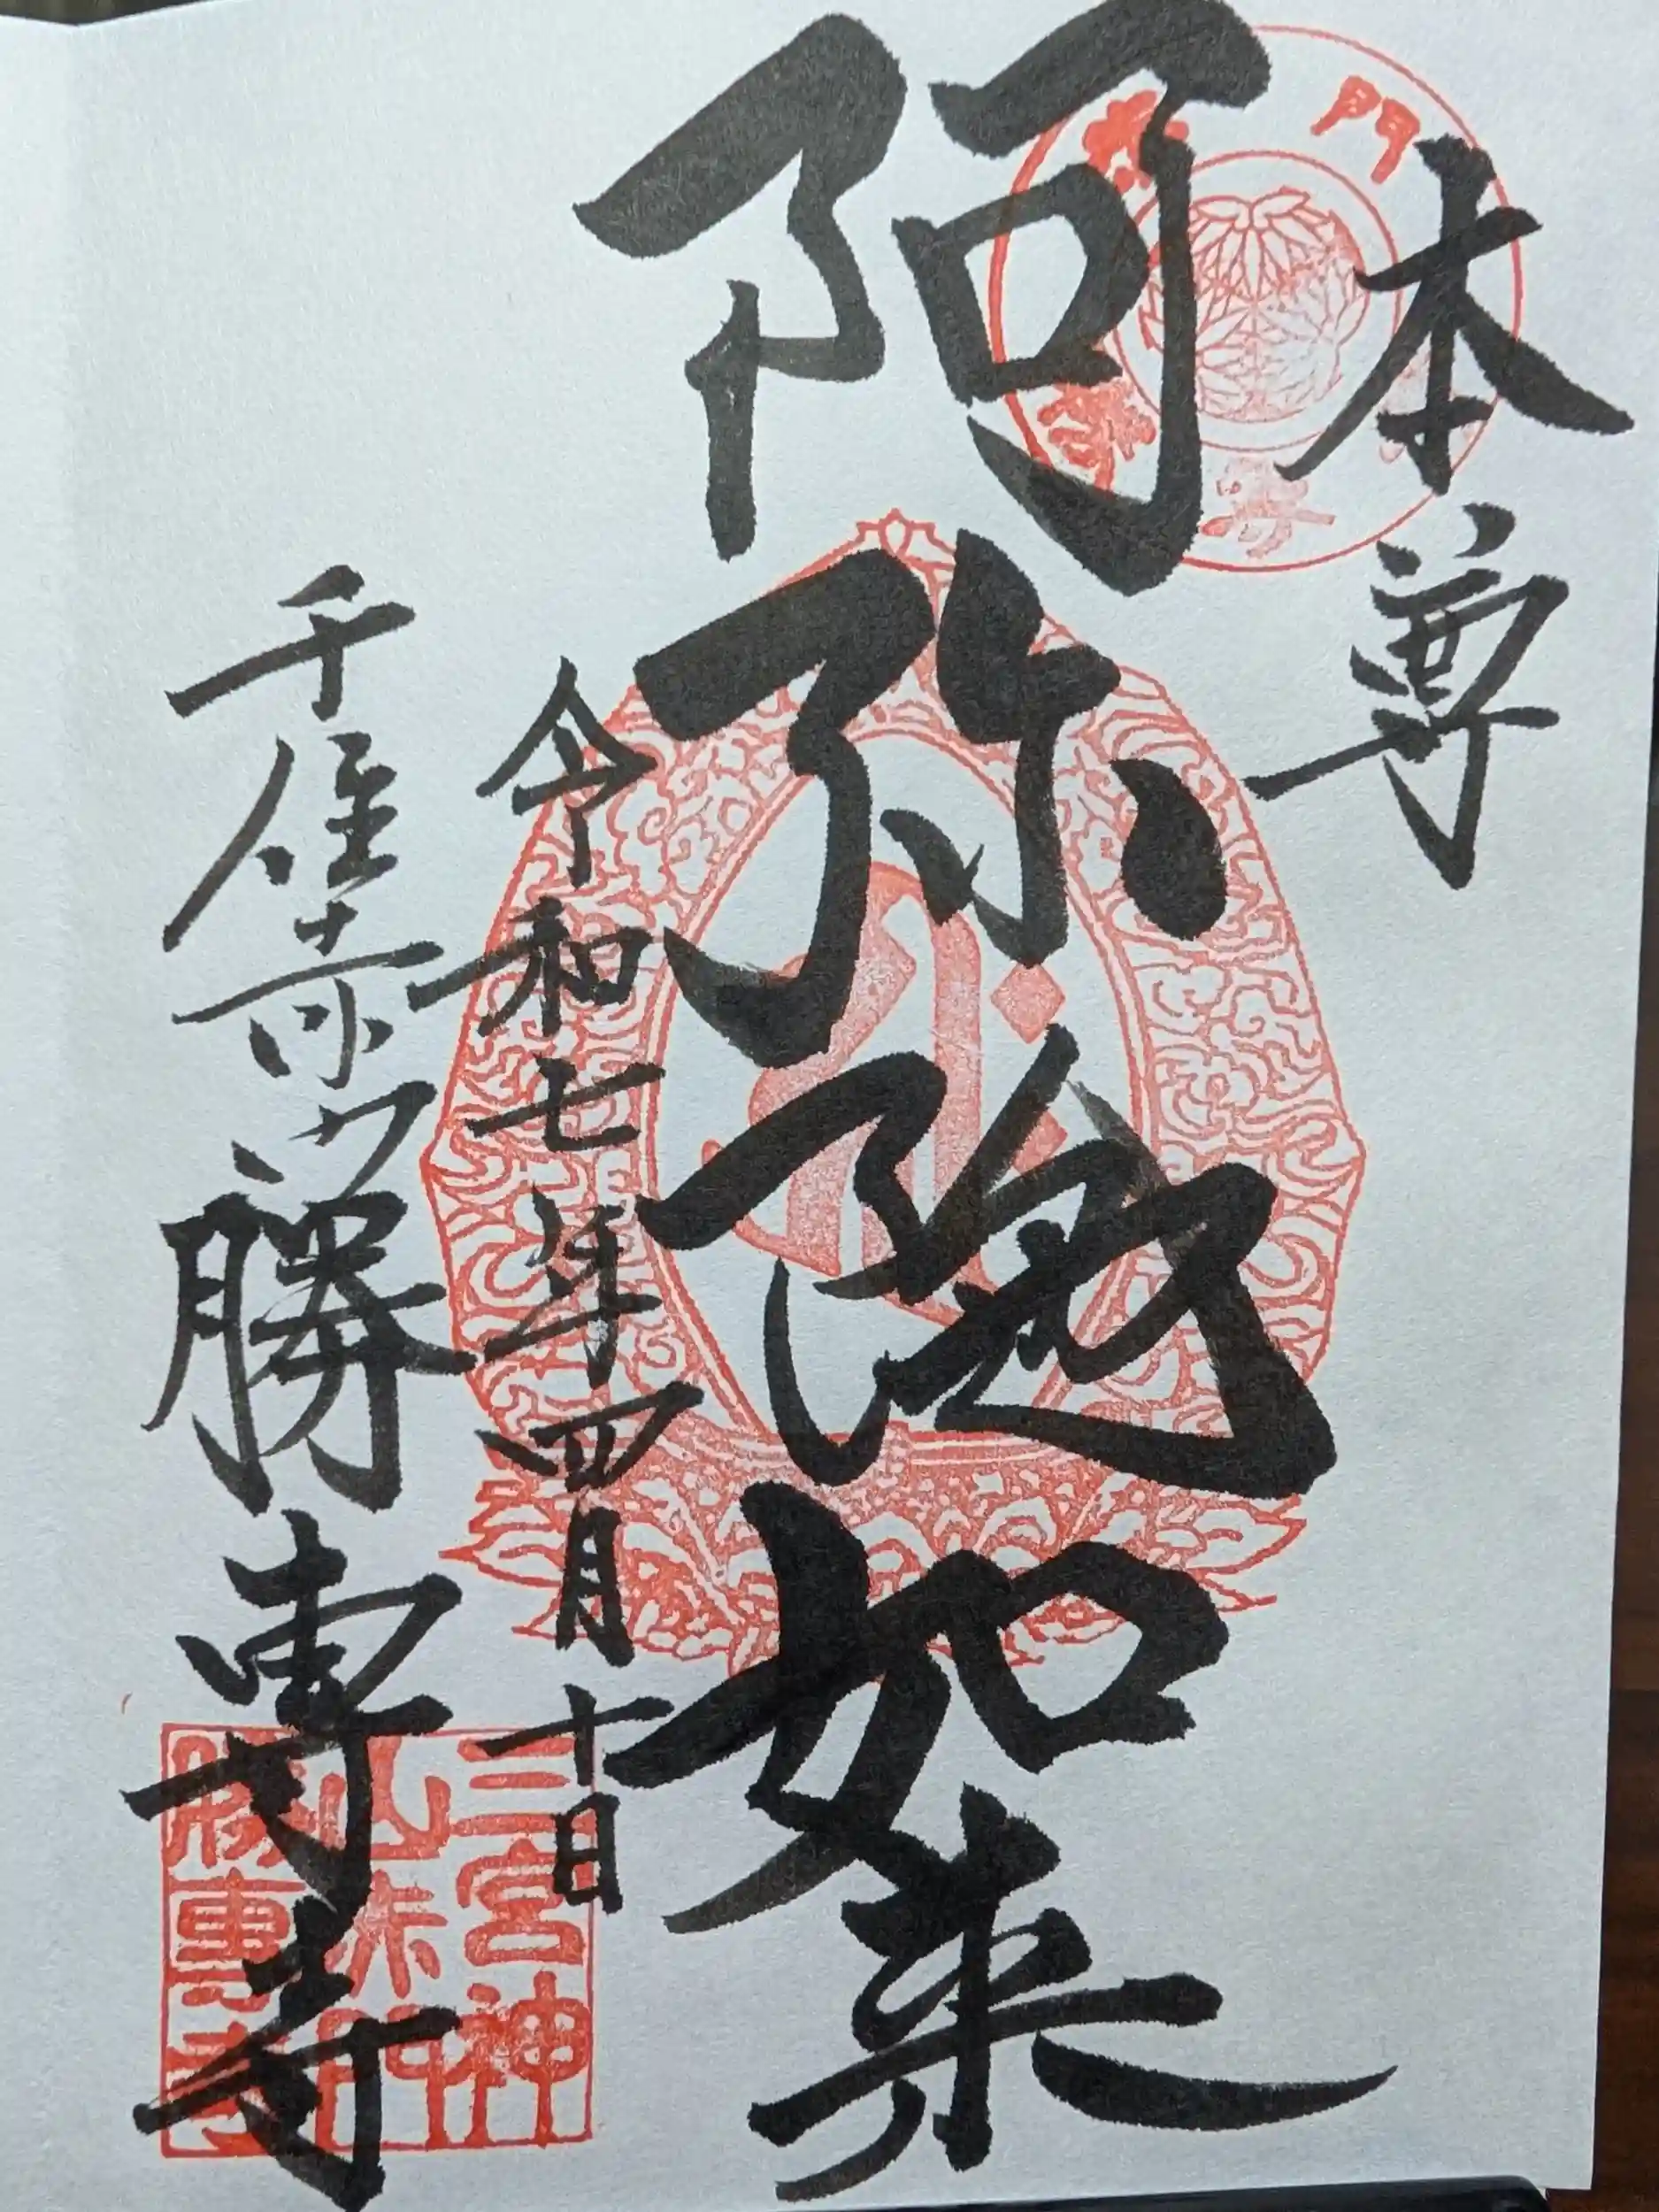 本尊
阿弥陀如来
令和七年四月十日
千住赤門勝専寺
三宮神
山赤門
勝専寺